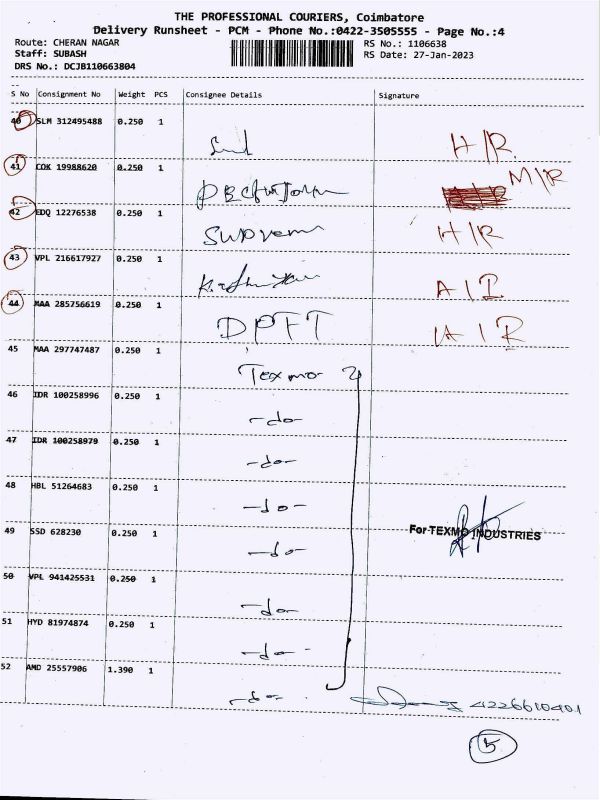 THE PROFESSIONAL COURIERS, Coimbatore
Delivery Runsheet - PCM - Phone No.:0422-3505555 - Page No.:4
Route: CHERAN NAGAR
RS No.: 1106638
Staff: SUBASH
RS Date: 27-Jan-2023
DRS No.: DCJB110663804
S No Consignment No Weight PCS Consignee Details Signature
40 SLM 312495488 0.250 1
H/R
41 COK 19988620 0.250 1
M/R
42 EDQ 12276538 0.250 1
H/R
43 VPL 216617927 0.250 1
44 MAA 285756619 0.250 1
DPFT
45 MAA 297747487 0.250 1
Texmo
46 IDR 100258996 0.250 1
-do-
47 IDR 100258979 0.250 1
-do-
48 HBL 51264683 0.250 1
-do-
49 SSD 628230 0.250 1
-do-
For TEXMO INDUSTRIES
50 VPL 941425531 0.250 1
-do-
51 HYD 81974874 0.250 1
-do-
52 AMD 25557906 1.390 1
-do-
4226610401
5